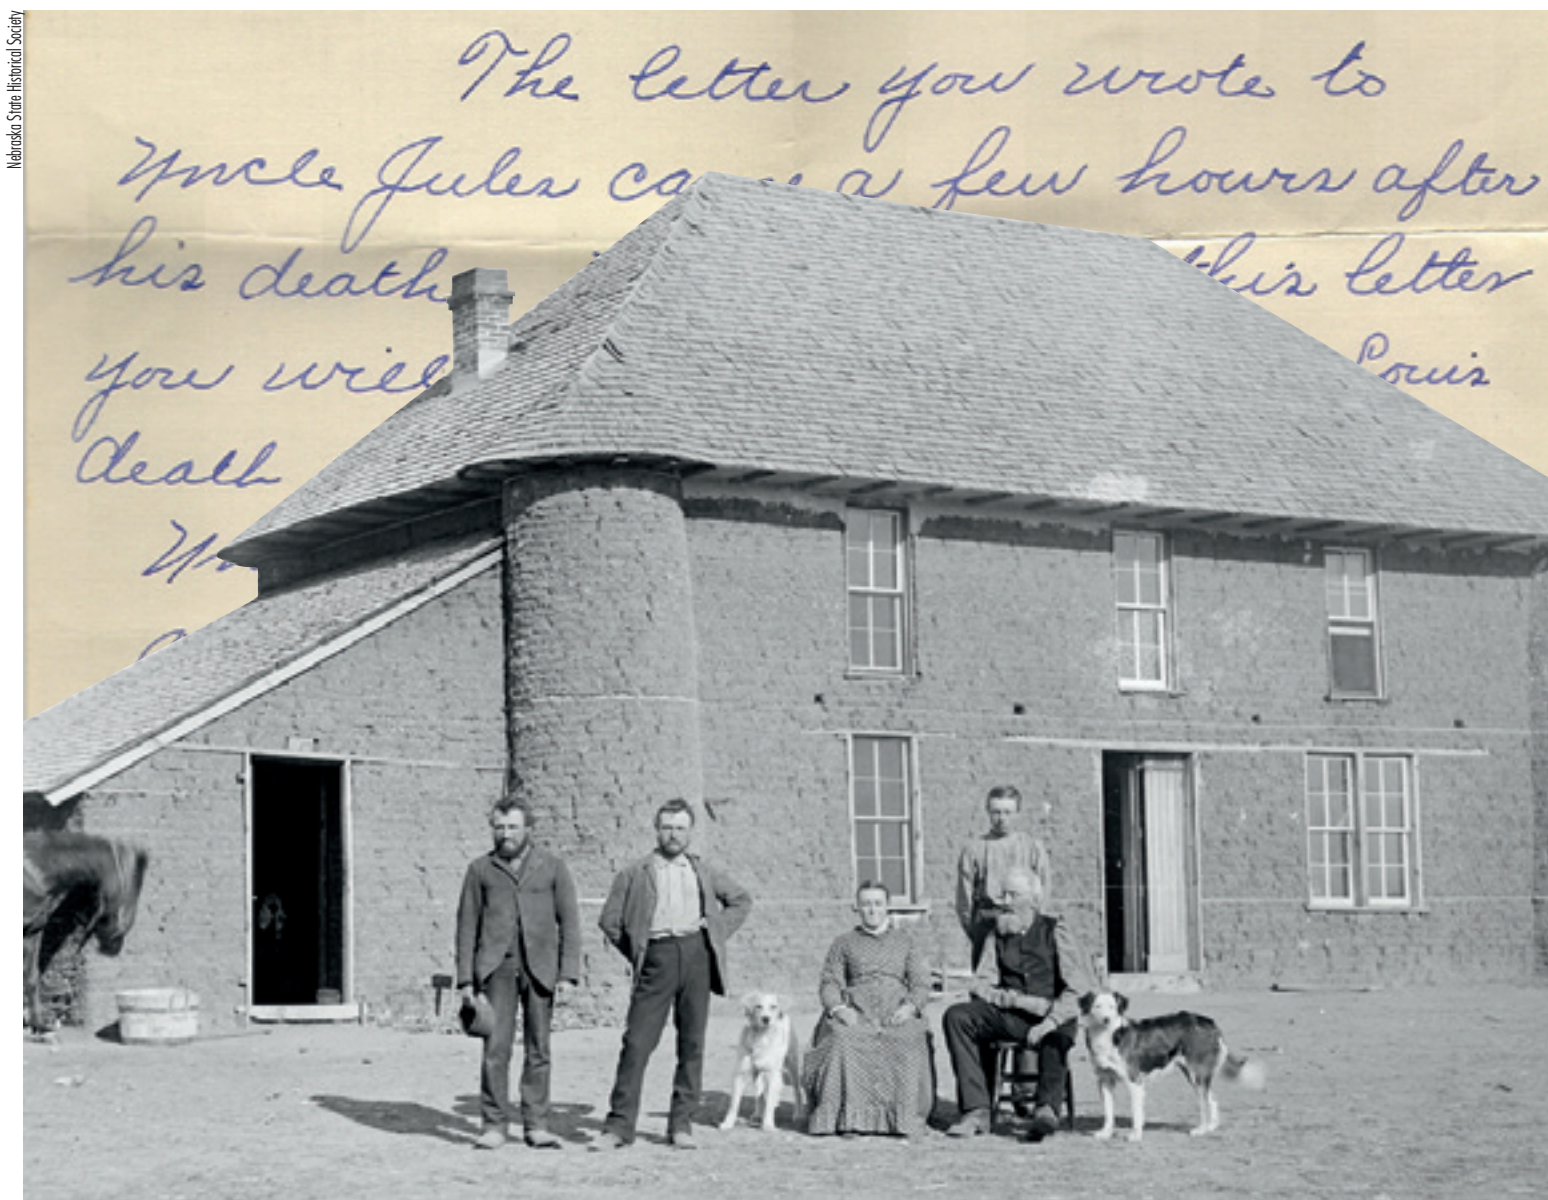 Nebraska State Historical Society
The letter you wrote to
Uncle Jules a few hours after
his death this letter
you will Louis
death